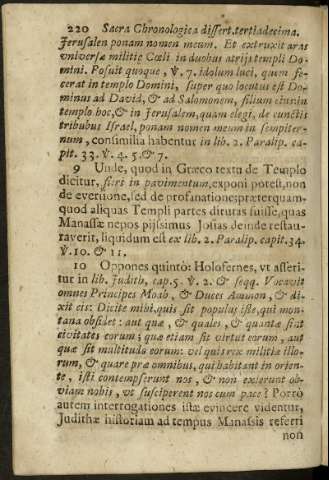 220 Sacra Chronologica dissert.tertiadecima.
Jerusalen ponam nomen meum. Et extruxit aras
universæ militiæ Cœli in duobus atrijs templi Do-
mini. Posuit quoque, ℣. 7. idolum luci, quem fe-
cerat in templo Domini, super quo locutus est Do-
minus ad David, & ad Salomonem, filium ejus:in
templo hoc,& in Jerusalem,quam elegi, de cunctis
tribubus Israel, ponam nomen meum in sempiter-
num, consimilia habentur in lib. 2. Paralip. ca-
pit. 33. ℣. 4. 5.& 7.
9 Unde, quod in Græco textu de Templo
dicitur, fieri in pavimentum,exponi potest,non
de eversione,sed de profanatione:præterquam-
quod aliquas Templi partes dirutas fuisse,quas
Manassæ nepos pijssimus Josias deinde restau-
raverit, liquidum est ex lib. 2. Paralip. capit.34.
℣.10. & 11.
10 Oppones quintò: Holofernes, vt asseri-
tur in lib. Judith, cap.5. ℣. 2. & seqq. Vocavit
omnes Principes Moab, & Duces Ammon, & di-
xit eis: Dicite mihi,quis sit populus iste,qui mon-
tana obsidet: aut quæ, & quales, & quantæ sint
civitates eorum; quæ etiam sit virtus eorum, aut
quæ sit multitudo eorum: vel quis rex militiæ illo-
rum, & quare præ omnibus, qui habitant in orien-
te, isti contempserunt nos, & non exierunt ob-
viam nobis, vt susciperent nos cum pace? Porrò
autem interrogationes istæ evincere videntur,
Judithæ historiam ad tempus Manassis referri
non